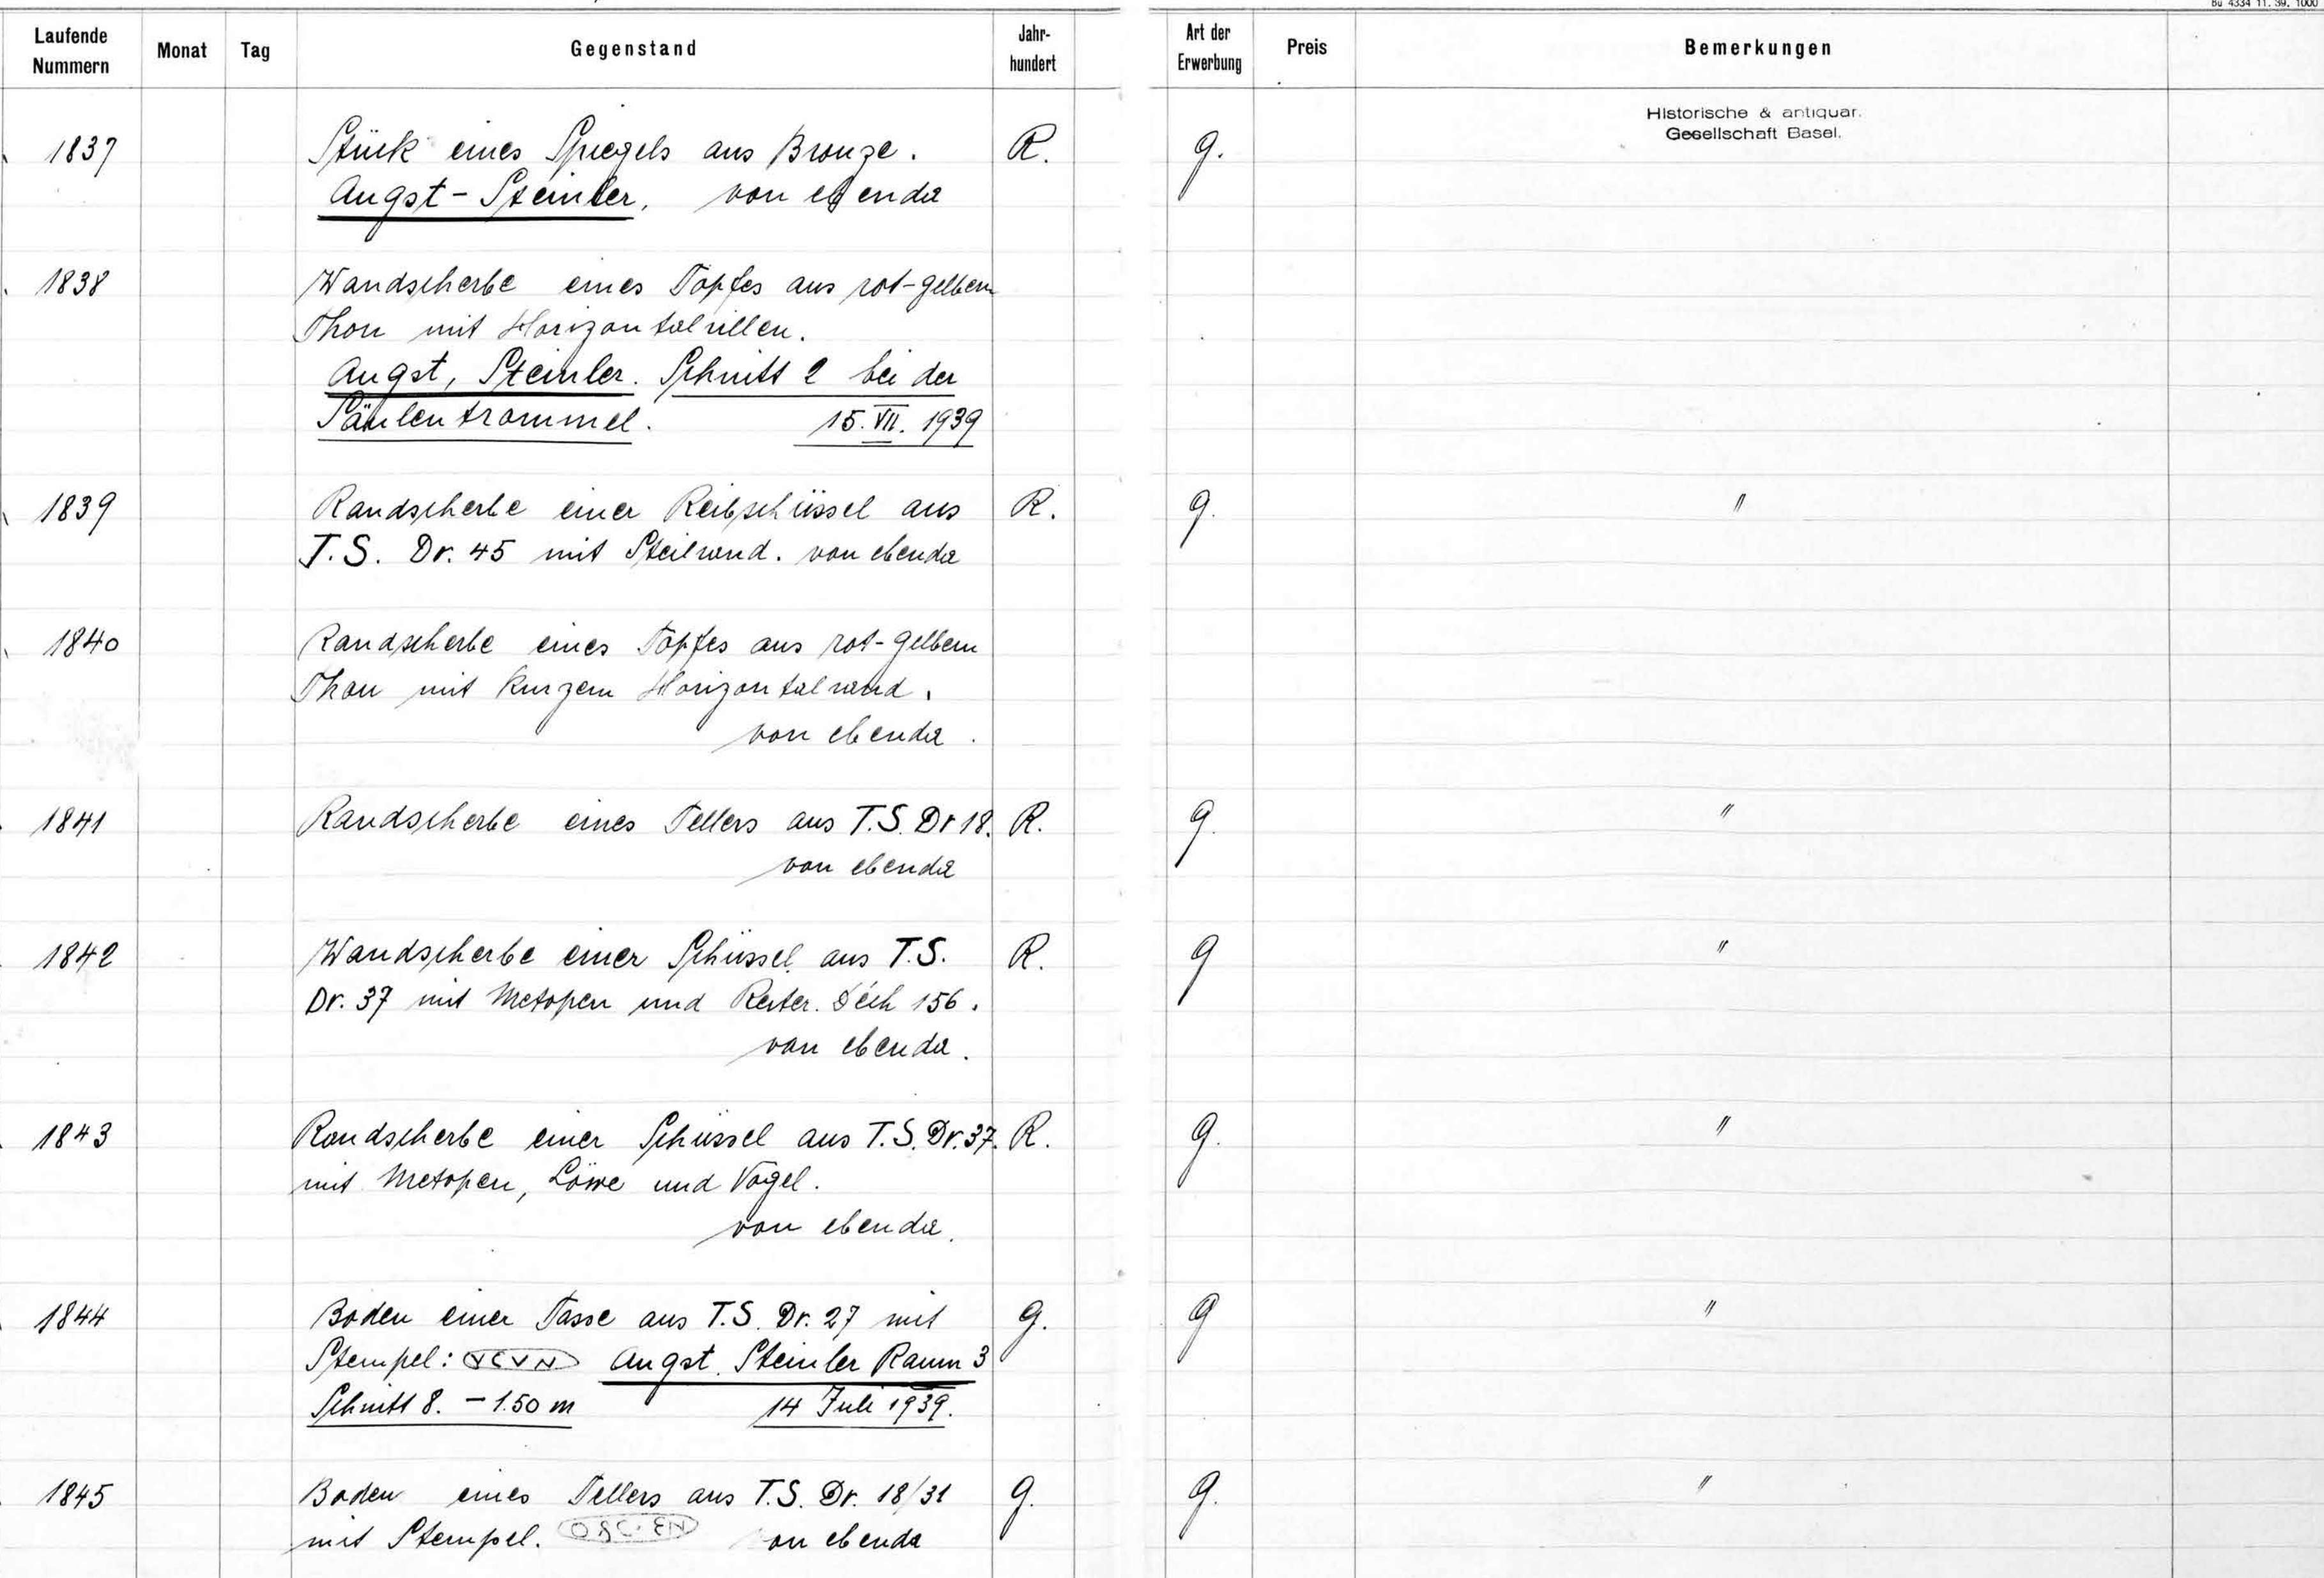 Bu 4334 11. 39. 1000
Laufende Nummern Monat Tag Gegenstand Jahr-hundert Art der Erwerbung Preis Bemerkungen
Historische & antiquar.
Gesellschaft Basel.
1837 Stück eines Spiegels aus Bronze. R. g.
Augst - Steinler, von ebenda
1838 Wandscherbe eines Topfes aus rot-gelbem
Thon mit Horizontalrillen.
Augst, Steinler. Schnitt 2 bei der
Säulentrommel. 15. VII. 1939
1839 Randscherbe einer Reibschüssel aus R. g. "
T.S. Dr. 45 mit Steilrand. von ebenda
1840 Randscherbe eines Topfes aus rot-gelbem
Thon mit kurzem Horizontalrand.
von ebenda.
1841 Randscherbe eines Tellers aus T.S. Dr 18. R. g. "
von ebenda
1842 Wandscherbe einer Schüssel aus T.S. R. g "
Dr. 37 mit Metopen und Reiter. Déch 156.
von ebenda.
1843 Randscherbe einer Schüssel aus T.S. Dr. 37. R. g. "
mit Metopen, Löwe und Vogel.
von ebenda.
1844 Boden einer Tasse aus T.S. Dr. 27 mit g. g "
Stempel: Augst. Steinler Raum 3
Schnitt 8. - 1.50 m 14 Juli 1939.
1845 Boden eines Tellers aus T.S. Dr. 18/31 g. g. "
mit Stempel. von ebenda